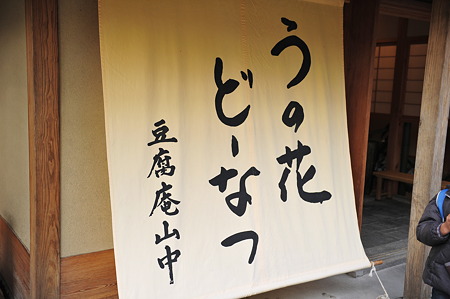 うの花
どーなつ
豆腐庵山中